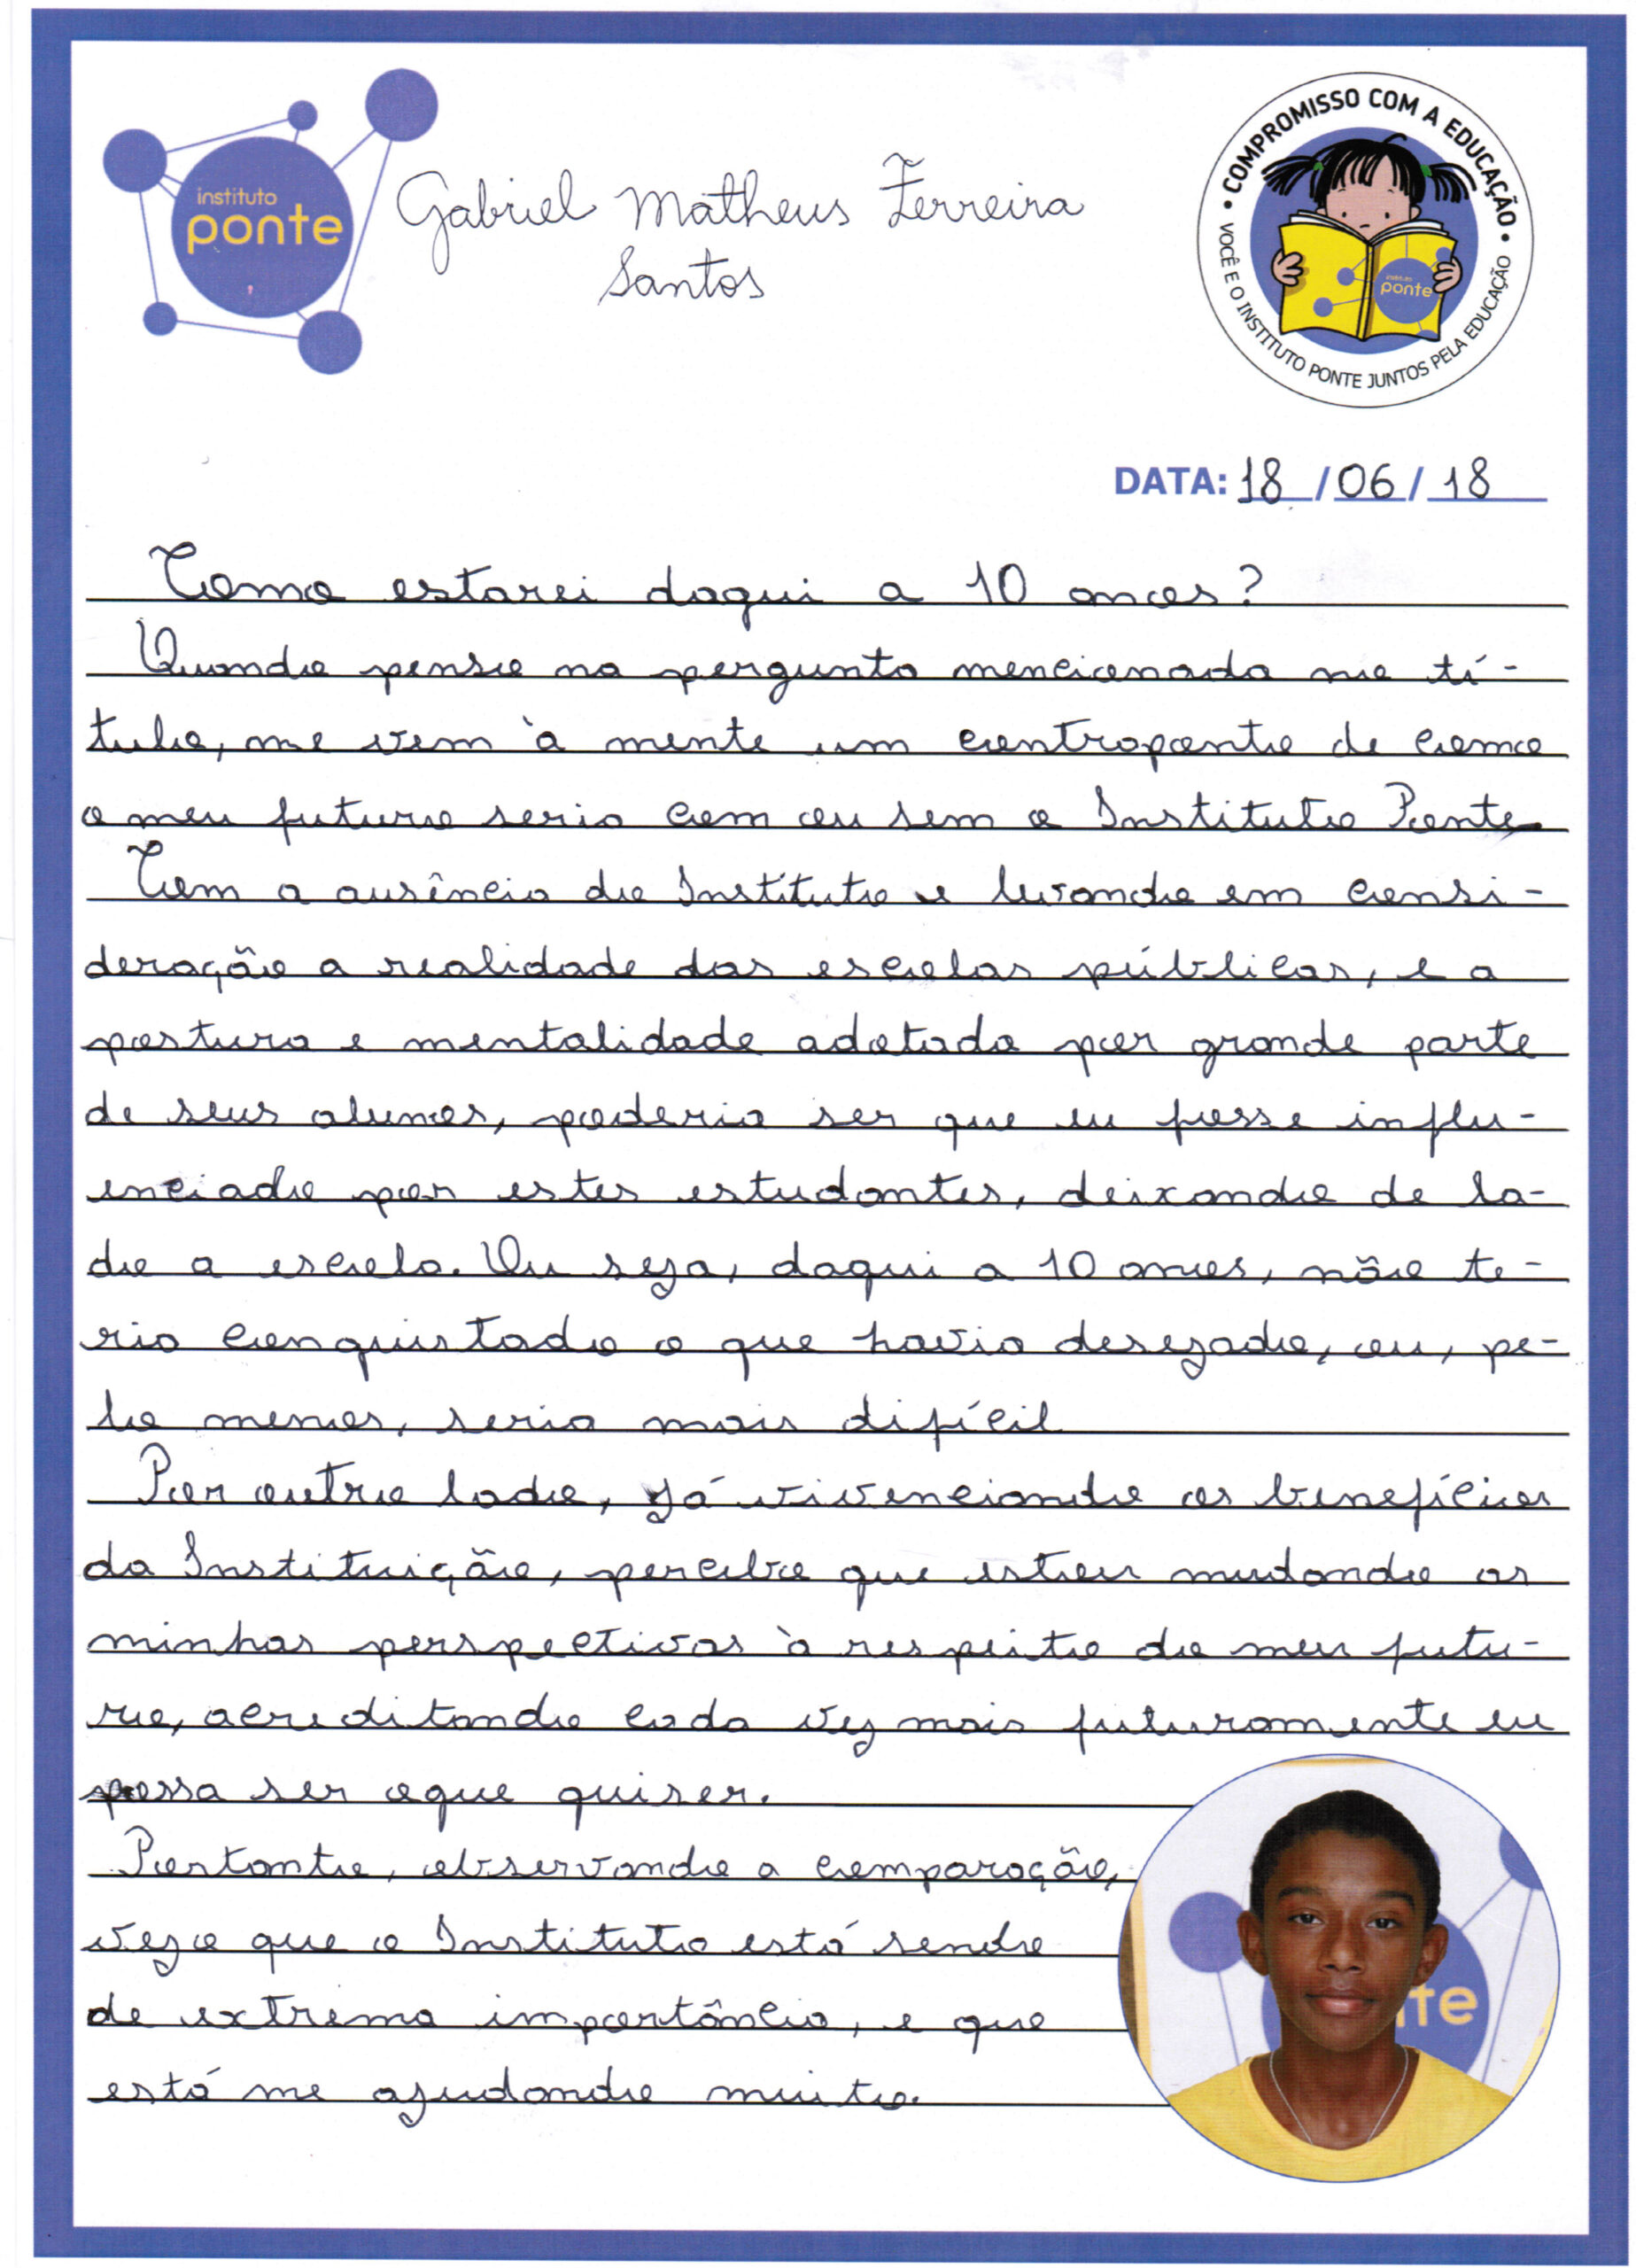 instituto
ponte
Gabriel Matheus Ferreira
Santos
• COMPROMISSO COM A EDUCAÇÃO •
VOCÊ E O INSTITUTO PONTE JUNTOS PELA EDUCAÇÃO
instituto
ponte
DATA: 18/06/18
Como estarei daqui a 10 anos?
Quando penso na pergunta mencionada no tí-
tulo, me vem à mente um contraponto de como
o meu futuro seria com ou sem o Instituto Ponte
Com a ausência do Instituto e levando em consi-
deração a realidade das escolas públicas, e a
postura e mentalidade adotada por grande parte
de seus alunos, poderia ser que eu fosse influ-
enciado por estes estudantes, deixando de la-
do a escola. Ou seja, daqui a 10 anos, não te-
ria conquistado o que havia desejado, ou, pe-
lo menos, seria mais difícil
Por outro lado, já vivenciando os benefícios
da Instituição, percebo que estou mudando as
minhas perspectivas à respeito do meu futu-
ro, acreditando cada vez mais futuramente eu
possa ser oque quiser.
Portanto, observando a comparação,
vejo que o Instituto está sendo
de extrema importância, e que
está me ajudando muito.
nte